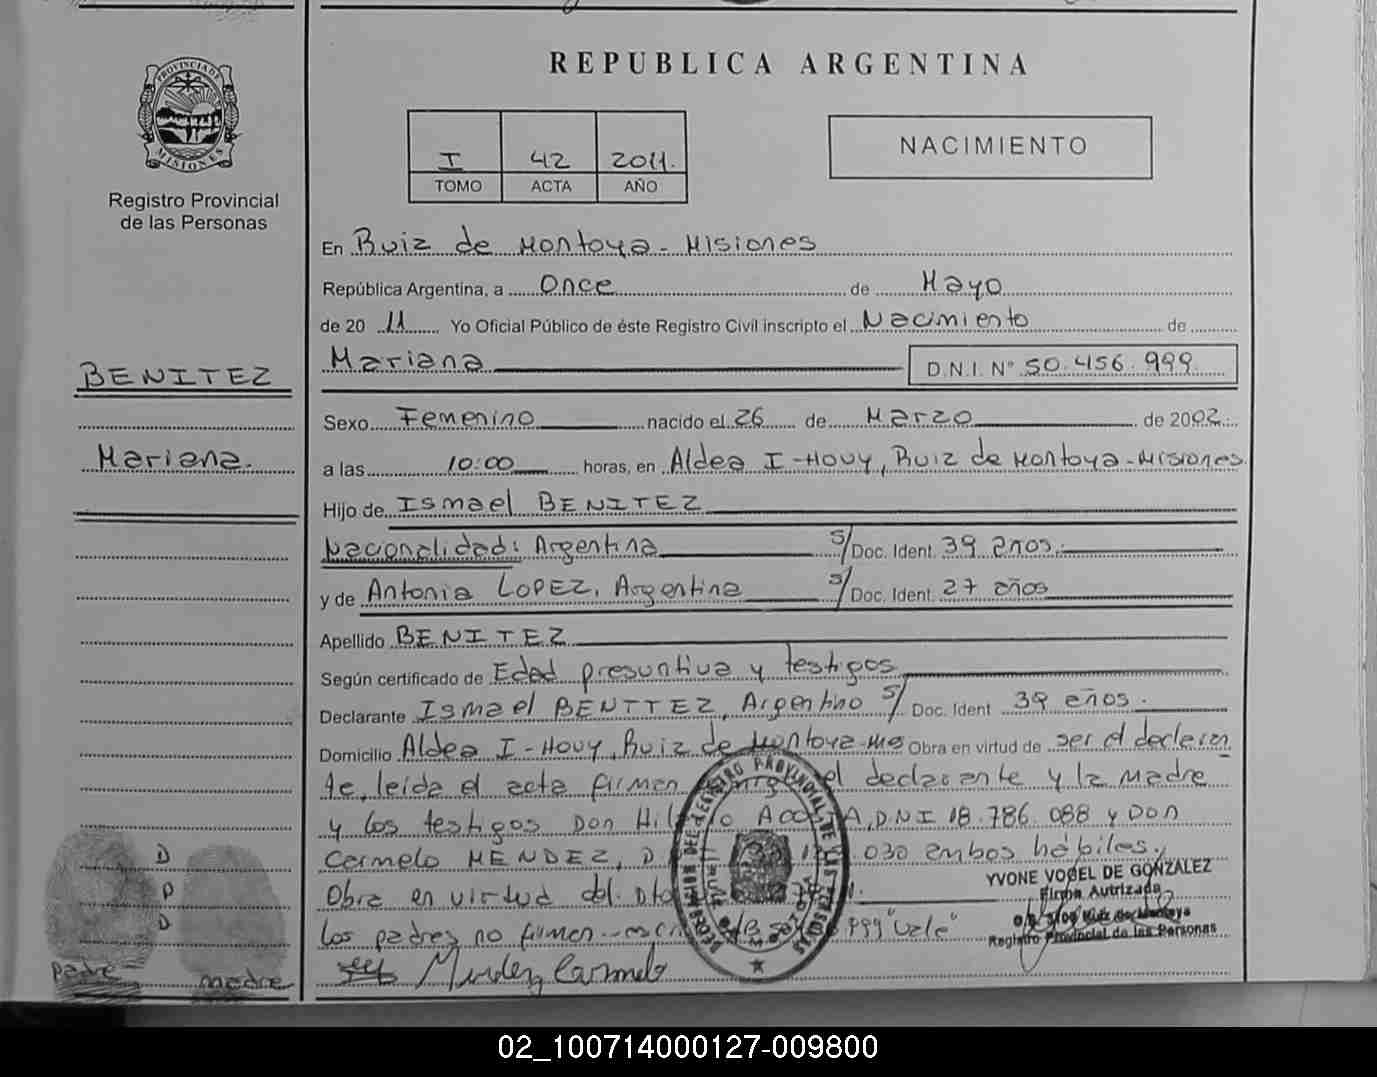 REPUBLICA ARGENTINA
PROVINCIA DE
MISIONES
Registro Provincial
de las Personas
I 42 2011.
TOMO ACTA AÑO
NACIMIENTO
En Ruiz de Montoya - Misiones
República Argentina, a Once de Mayo
de 20 11 Yo Oficial Público de éste Registro Civil inscripto el Nacimiento de
Mariana D.N.I. N° 50.456.999.
BENITEZ
Mariana.
Sexo Femenino nacido el 26 de Marzo de 2002
a las 10:00 horas, en Aldea I-Hovy, Ruiz de Montoya - Misiones
Hijo de Ismael BENITEZ
Nacionalidad: Argentina S/ Doc. Ident. 39 años.
y de Antonia LOPEZ, Argentina S/ Doc. Ident. 27 años
Apellido BENITEZ
Según certificado de Edad presuntiva y testigos
Declarante Ismael BENITEZ, Argentino S/ Doc. Ident 39 años.
Domicilio Aldea I-Hovy, Ruiz de Montoya-Mns Obra en virtud de ser el declaran
te, leída el acta firman el declarante y la madre
y los testigos Don A, D.N.I 18.786.088 y Don
Carmelo MENDEZ, D 030 ambos hábiles,
Obra en virtud del Dto
los padres no firman 999 "Vale"
Mendez Carmelo
D
P
D
padre madre
DELEGACION DEL REGISTRO PROVINCIAL DE LAS PERSONAS
YVONE VOGEL DE GONZALEZ
Firma Autrizada
Ruiz de Montoya
Registro Provincial de las Personas
02_100714000127-009800